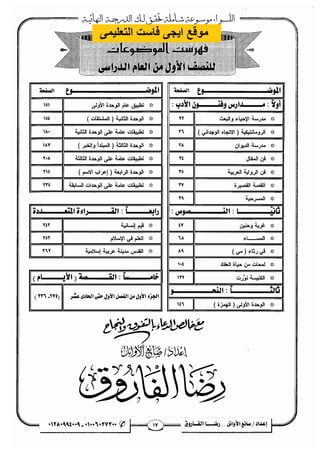 اللواء موسوعة شاملة تحقق لك الدرجة النهائية
موقع ايجى فاست التعليمى
فهرست الموضوعات
للنصف الأول من العام الدراسى
الموضوع الصفحة
أولاً : مدارس وفنون الأدب :
مدرسة الإحياء والبعث ٢٢
الرومانتيكية ( الاتجاه الوجدانى ) ٢٦
مدرسة الديوان ٢٨
فن المقال ٣٤
فن الرواية العربية ٣٥
القصة القصيرة ٣٧
المسرحية ٣٩
ثانياً : النصوص :
غربة وحنين ٤٢
المساء ٦٨
فى رثاء ( مى ) ٨٩
لمحات من حياة العقاد ١٠٤
الكنيسة نورت ١٣٢
ثالثاً : النحو
الوحدة الأولى ( الهمزة ) ١٤٦
الموضوع الصفحة
تطبيق عام الوحدة الأولى ١٥١
الوحدة الثانية ( المشتقات ) ١٥٤
تطبيقات عامة على الوحدة الثانية ١٨٠
الوحدة الثالثة ( المبتدأ والخبر ) ١٨٧
تطبيقات عامة على الوحدة الثالثة ٢٠٨
الوحدة الرابعة ( إعراب الاسم ) ٢١٥
تطبيقات عامة على الوحدات السابقة ٢٣٥
رابعاً : القراءة المتعددة
قيم إنسانية ٢٤٢
العلم فى الإسلام ٢٥٢
القدس مدينة عربية إسلامية ٢٦٢
خامساً : القصة ( الأيام )
الجزء الأول من الفصل الأول حتى الحادى عشر (٢٧٤، ٣٣٦)
مع خالص الدعاء بالتفوق والنجاح
إعداد / صانع الأوائل
رضا الفاروق
إعداد / صانع الأوائل .. رضا الفاروق
١٧
٠١٠٠٦٠٢٧٣٠٠ - ٠١٢٨٠٩٩٤٠٠٩